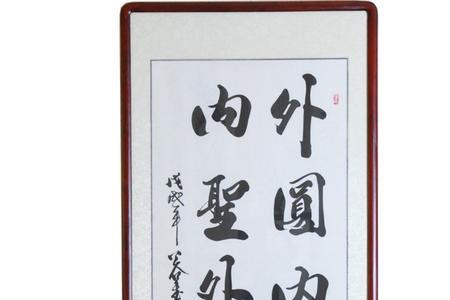 外圓内
内聖外
戊戌年